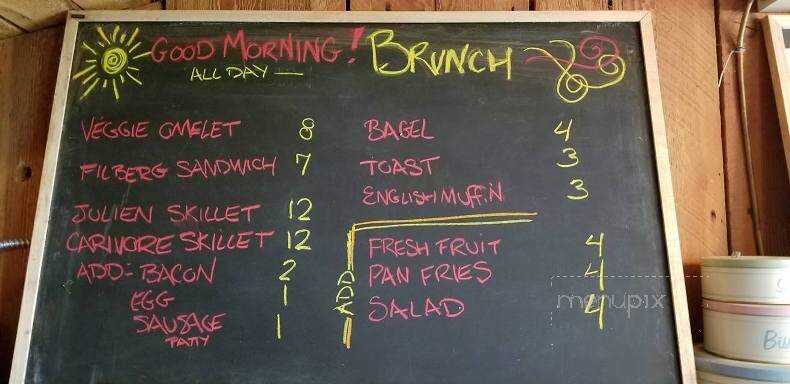 GOOD MORNING! BRUNCH
ALL DAY —
VEGGIE OMELET 8
FILBERG SANDWICH 7
JULIEN SKILLET 12
CARIVORE SKILLET 12
ADD- BACON 2
EGG 1
SAUSAGE 1
PATTY
BAGEL 4
TOAST 3
ENGLISH MUFFIN 3
ADD
FRESH FRUIT 4
PAN FRIES 4
SALAD 4
menupix